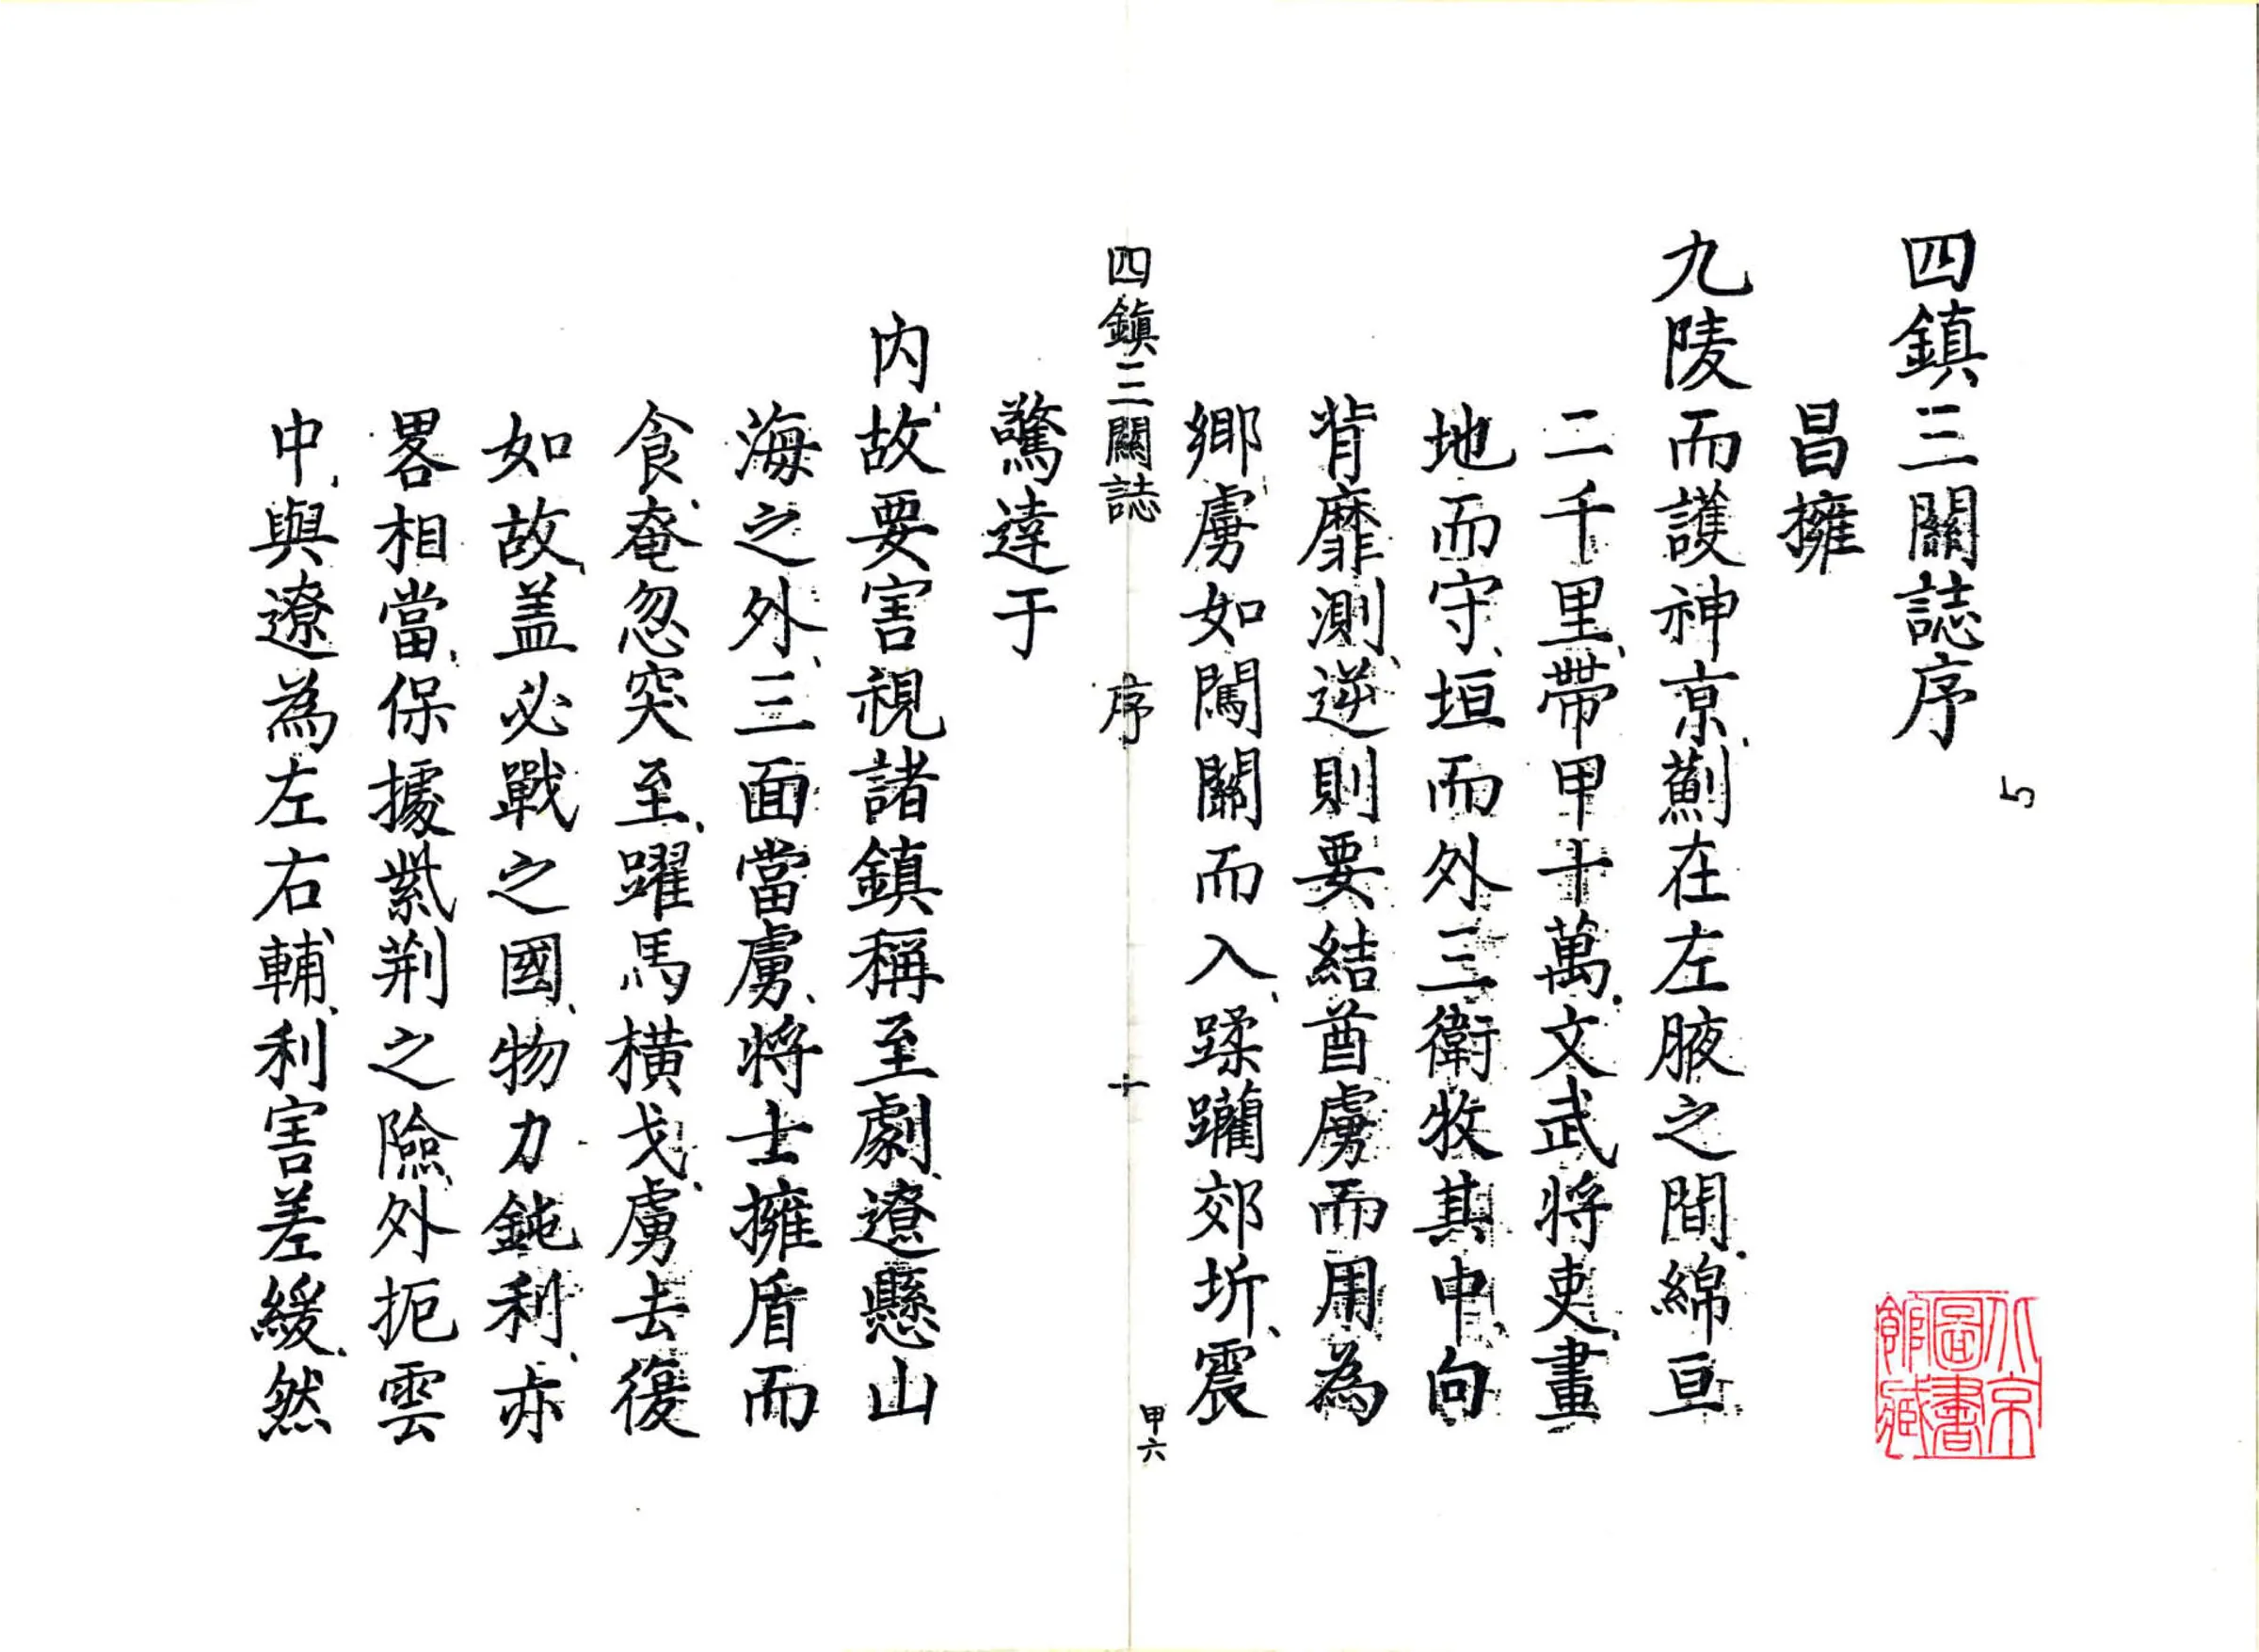 四鎮三關誌序
5
昌擁
九陵而護神京、薊在左腋之間、綿亘
二千里、帶甲十萬、文武將吏、畫
地而守、垣而外三衛牧其中、向
背靡測、逆則要結酋虜而用為
鄉虜、如闖關而入、蹂躪郊圻、震
四鎮三關誌 序 十 甲六
驚達于
內、故要害視諸鎮稱至劇、遼懸山
海之外、三面當虜、將士擁盾而
食、奄忽突至、躍馬橫戈、虜去復
如故、盖必戰之國、物力鈍利、亦
畧相當、保據紫荆之險、外扼雲
中、與遼為左右輔、利害差緩、然
北京圖書館藏